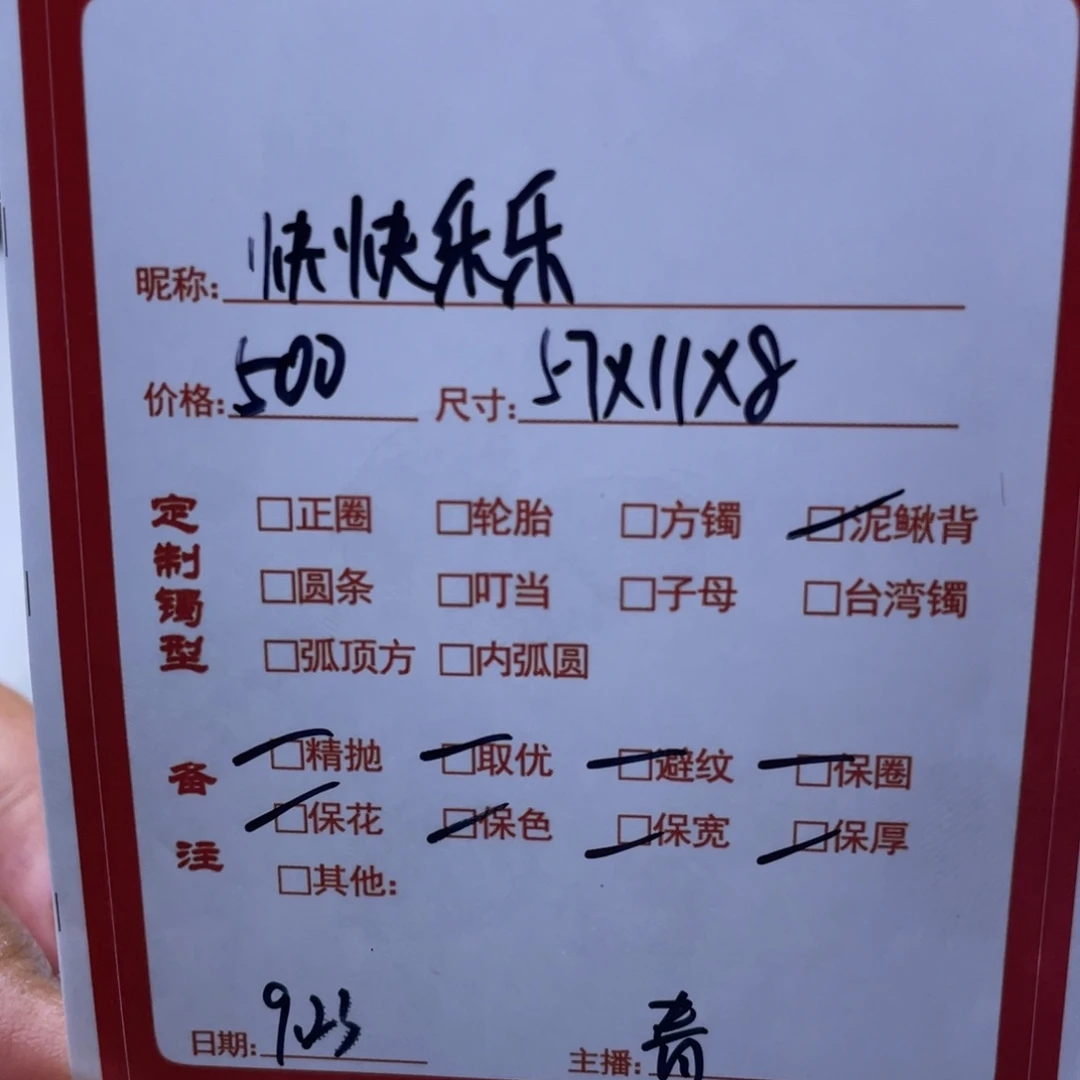 昵称: 快快乐乐
价格: 500 尺寸: 57X11X8
定制镯型
□正圈 □轮胎 □方镯 □泥鳅背
□圆条 □叮当 □子母 □台湾镯
□弧顶方 □内弧圆
备注
□精抛 □取优 □避纹 □保圈
□保花 □保色 □保宽 □保厚
□其他:
日期: 923 主播: